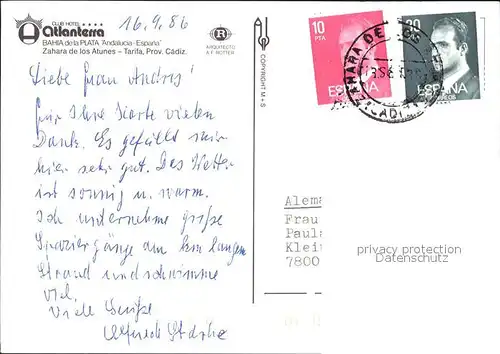 CLUB HOTEL
Atlanterra
BAHIA de la PLATA "Andalucia - España"
Zahara de los Atunes - Tarifa, Prov. Cádiz.
16.9.86
R
ARQUITECTO
A.F. ROTTER
COPYRIGHT M + S
Liebe Frau Andres!
Für Ihre Karte vielen
Dank. Es gefällt mir
hier sehr gut. Das Wetter
ist sonnig u. warm.
Ich unternehme große
Spaziergänge am km langen
Strand und schwimme
viel.
Viele Grüße
Alfred
10
PTA
ESPAÑA
ESPAÑA
Alema
Frau
Paula
Klein
7800
privacy protection
Datenschutz